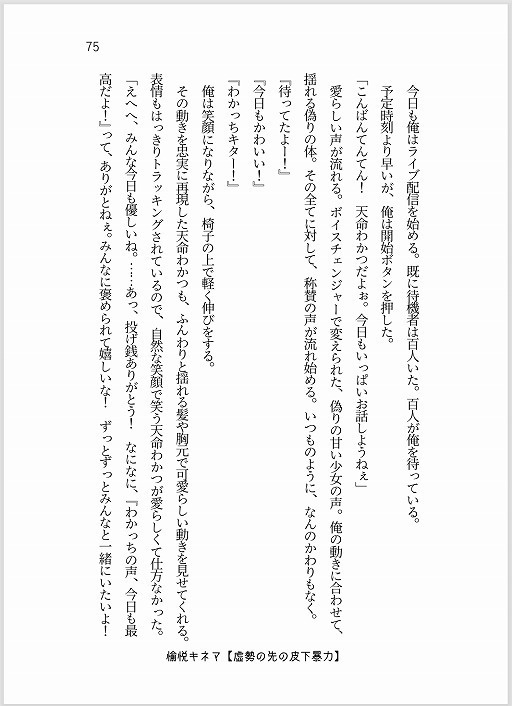 75
今日も俺はライブ配信を始める。既に待機者は百人いた。百人が俺を待っている。
予定時刻より早いが、俺は開始ボタンを押した。
「こんばんてんてん！　天命わかつだよぉ。今日もいっぱいお話しようねぇ」
愛らしい声が流れる。ボイスチェンジャーで変えられた、偽りの甘い少女の声。俺の動きに合わせて、
揺れる偽りの体。その全てに対して、称賛の声が流れ始める。いつものように、なんのかわりもなく。
『待ってたよー！』
『今日もかわいい！』
『わかっちキター！』
俺は笑顔になりながら、椅子の上で軽く伸びをする。
その動きを忠実に再現した天命わかつも、ふんわりと揺れる髪や胸元で可愛らしい動きを見せてくれる。
表情もはっきりトラッキングされているので、自然な笑顔で笑う天命わかつが愛らしくて仕方なかった。
「えへへ、みんな今日も優しいね。……あっ、投げ銭ありがとう！　なになに、『わかっちの声、今日も最
高だよ！』って、ありがとねぇ。みんなに褒められて嬉しいな！　ずっとずっとみんなと一緒にいたいよ！
愉悦キネマ【虚勢の先の皮下暴力】